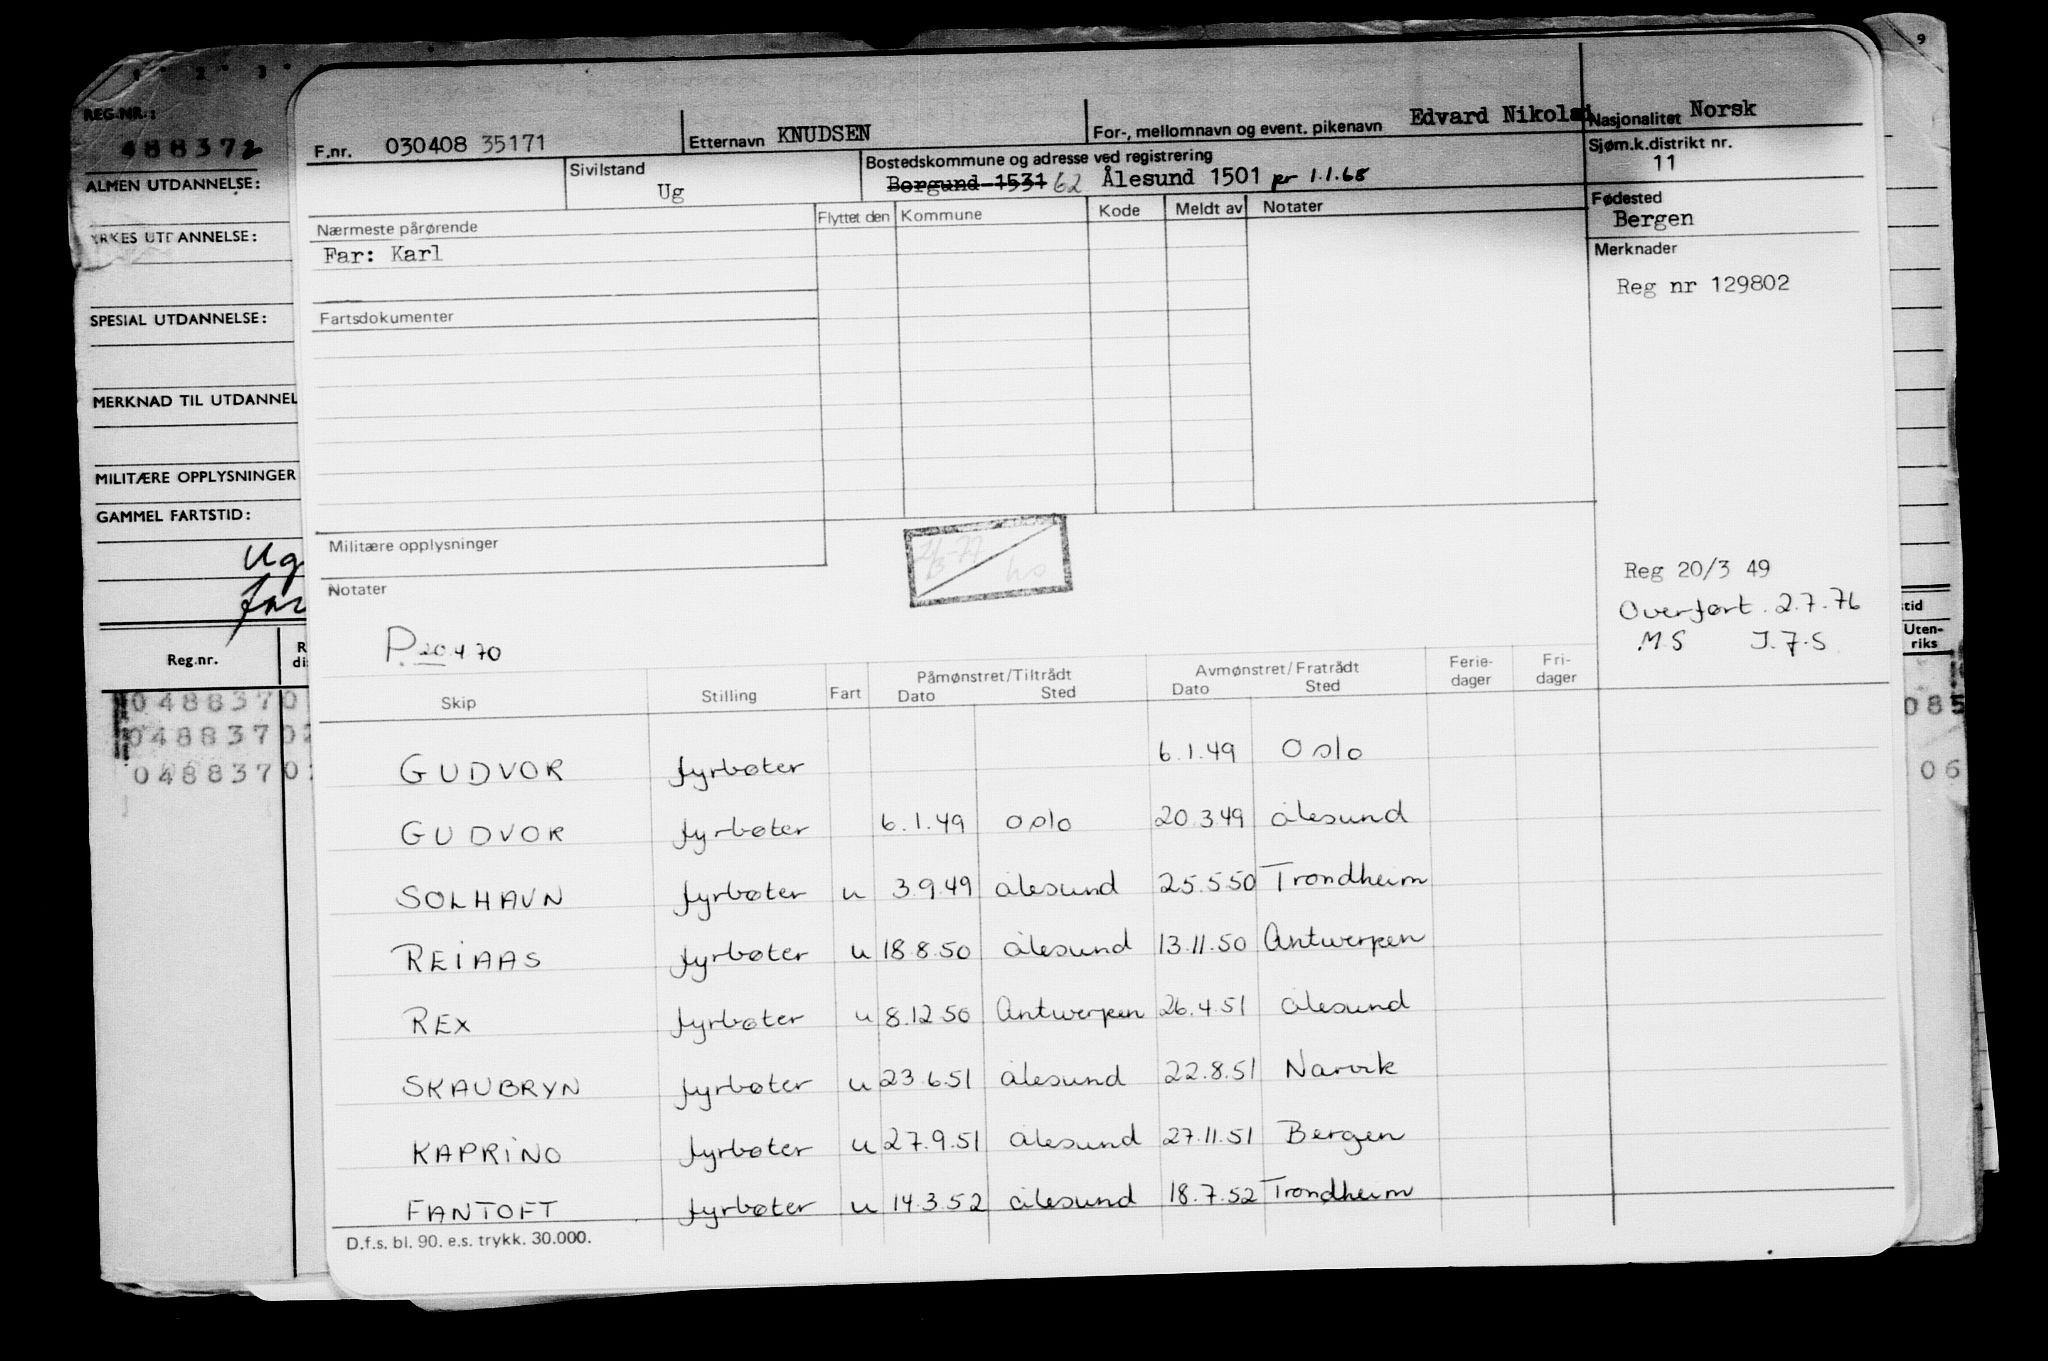 9
1 2 3
REG.NR.:
488372
ALMEN UTDANNELSE:
YRKES UTDANNELSE:
SPESIAL UTDANNELSE:
MERKNAD TIL UTDANNEL
MILITÆRE OPPLYSNINGER
GAMMEL FARTSTID:
Ug
far
Reg.nr.
R
di
0488370
0488370
0488370
tid
Uten-
riks
085
06
F.nr. 030408 35171
Etternavn KNUDSEN
For-, mellomnavn og event. pikenavn Edvard Nikolai
Nasjonalitet Norsk
Sivilstand
Ug
Bostedskommune og adresse ved registrering
Borgund 1531 62 Ålesund 1501 pr 1.1.68
Sjøm.k.distrikt nr.
11
Fødested
Bergen
Nærmeste pårørende
Far: Karl
Flyttet den Kommune Kode Meldt av Notater
Merknader
Reg nr 129802
Fartsdokumenter
Militære opplysninger
Notater
P. 20.4 70
Reg 20/3 49
Overført. 2.7.76
M.S J.F.S.
Skip Stilling Fart Påmønstret/Tiltrådt Dato Sted Avmønstret/Fratrådt Dato Sted Ferie-dager Fri-dager
GUDVOR fyrbøter 6.1.49 Oslo
GUDVOR fyrbøter 6.1.49 oslo 20.3 49 ålesund
SOLHAVN fyrbøter u 3.9.49 ålesund 25.5 50 Trondheim
REIAAS fyrbøter u 18.8.50 ålesund 13.11.50 Antwerpen
REX fyrbøter u 8.12 50 Antwerpen 26.4.51 ålesund
SKAUBRYN fyrbøter u 23.6.51 ålesund 22.8.51 Narvik
KAPRINO fyrbøter u 27.9.51 ålesund 27.11.51 Bergen
FANTOFT fyrbøter u 14.3.52 ålesund 18.7.52 Trondheim
D.f.s. bl. 90. e.s. trykk. 30.000.